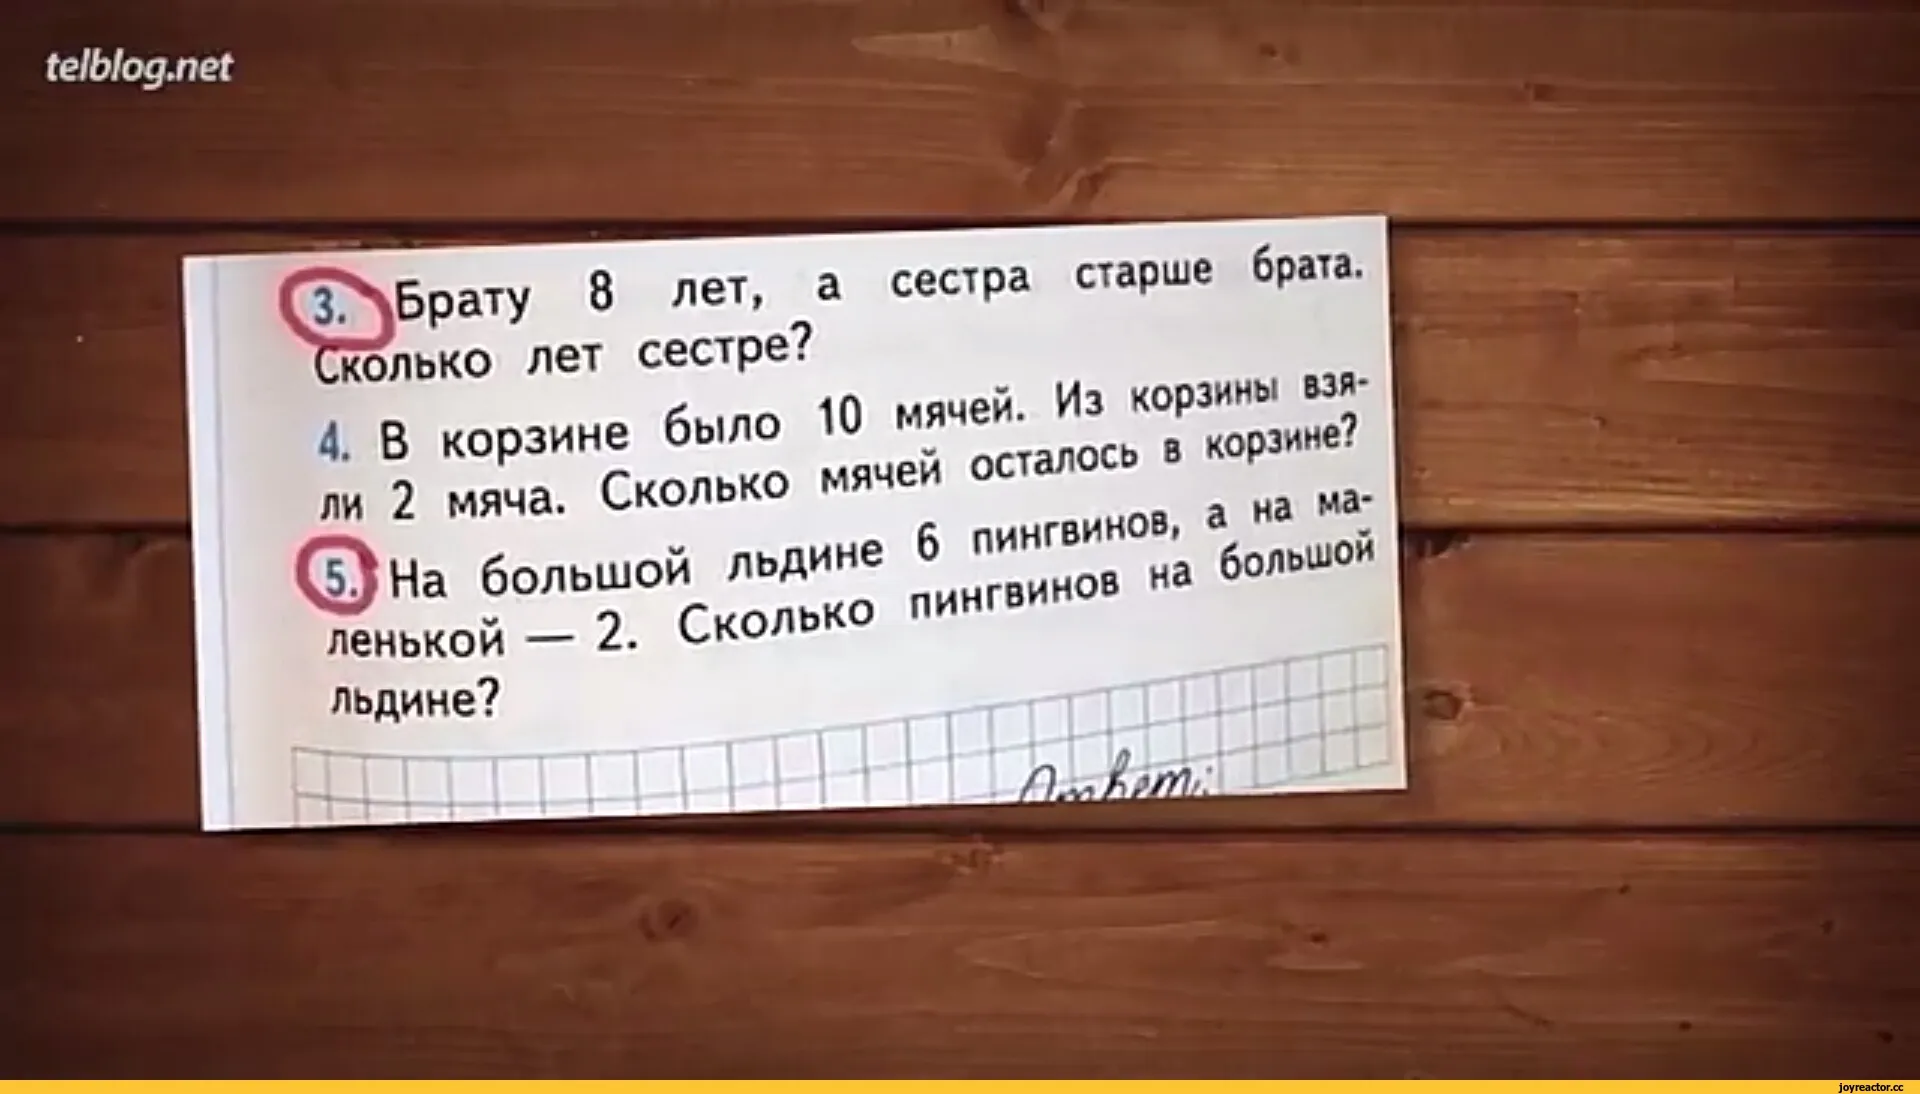 telblog.net
3. Брату 8 лет, а сестра старше брата.
Сколько лет сестре?
4. В корзине было 10 мячей. Из корзины взя-
ли 2 мяча. Сколько мячей осталось в корзине?
5. На большой льдине 6 пингвинов, а на ма-
ленькой — 2. Сколько пингвинов на большой
льдине?
Ответ:
joyreactor.cc